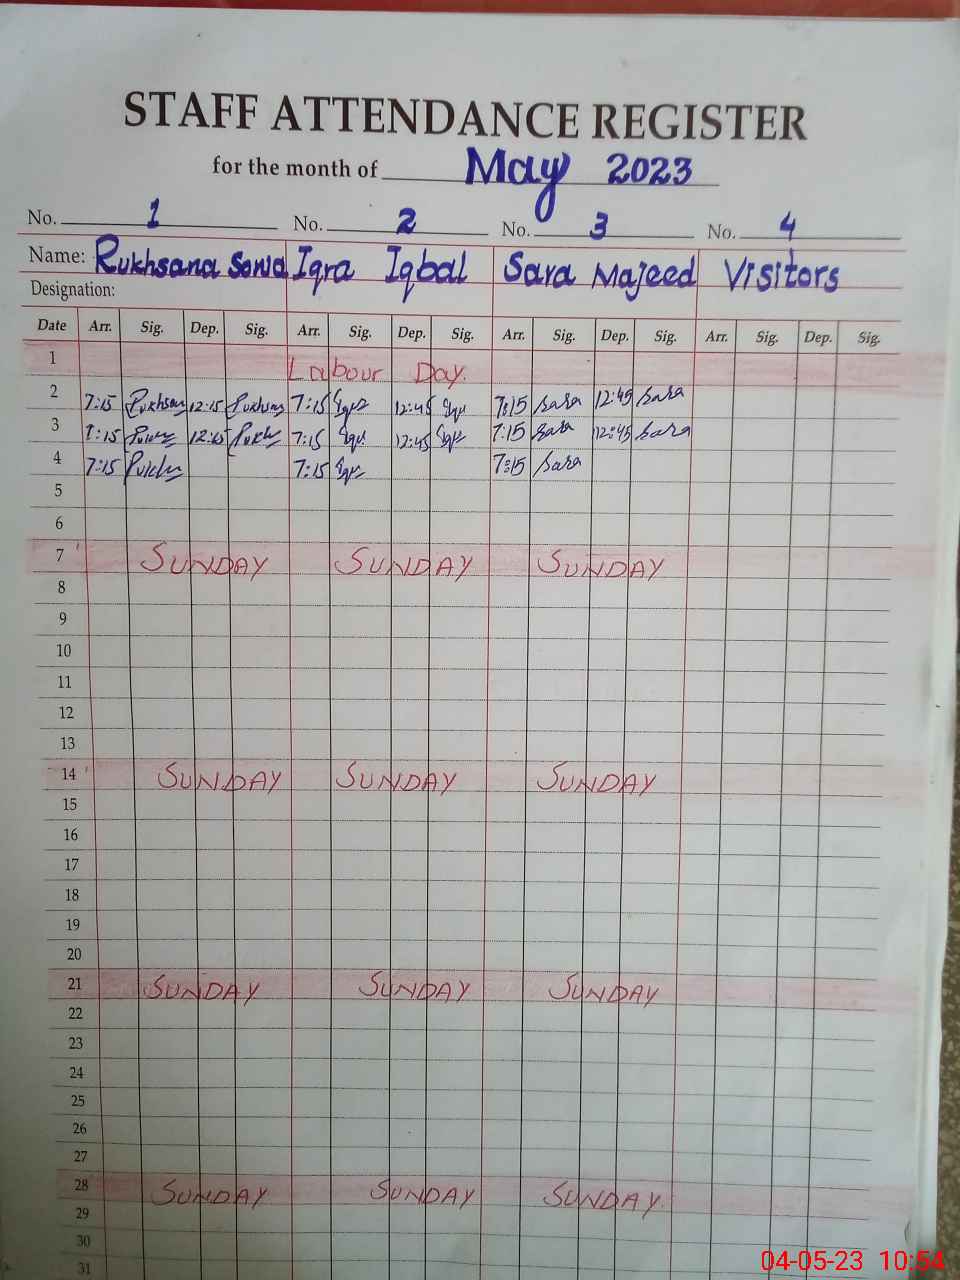 STAFF ATTENDANCE REGISTER
for the month of May 2023
No. 1 No. 2 No. 3 No. 4
Name: Rukhsana Sonia Iqra Iqbal Sara Majeed Visitors
Designation:
Date Arr. Sig. Dep. Sig. Arr. Sig. Dep. Sig. Arr. Sig. Dep. Sig. Arr. Sig. Dep. Sig.
1 Labour Day.
2 7:15 Rukhsana 12:15 Rukhsana 7:15 Iqra 12:45 Iqra 7:15 Sara 12:45 Sara
3 7:15 7:15 Iqra 12:45 Iqra 7:15 Sara 12:45 Sara
4 7:15 7:15 Iqra 7:15 Sara
5
6
7 SUNDAY SUNDAY SUNDAY
8
9
10
11
12
13
14 SUNDAY SUNDAY SUNDAY
15
16
17
18
19
20
21 SUNDAY SUNDAY SUNDAY
22
23
24
25
26
27
28 SUNDAY SUNDAY SUNDAY
29
30
31
04-05-23 10:54